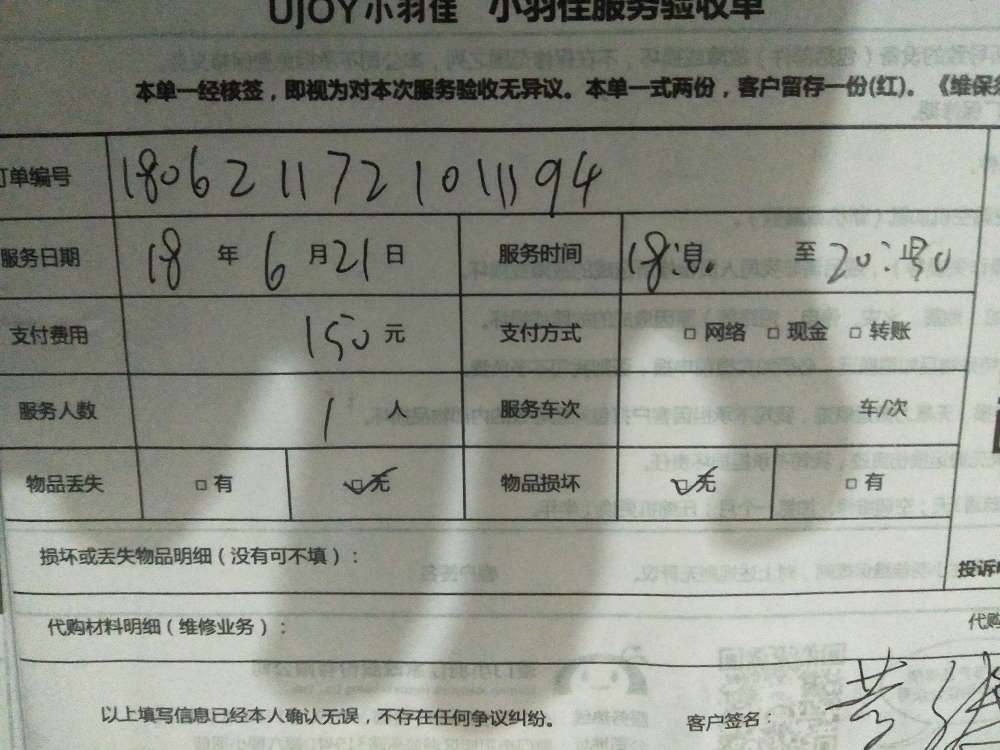 UJOY小羽佳 小羽佳服务验收单
本单一经核签，即视为对本次服务验收无异议。本单一式两份，客户留存一份(红)。《维保
订单编号 180621172101194
服务日期 18 年 6 月 21 日 服务时间 18: 至 20:
支付费用 150 元 支付方式 □ 网络 □ 现金 □ 转账
服务人数 1 人 服务车次 车/次
物品丢失 □ 有 ☑无 物品损坏 ☑无 □ 有
损坏或丢失物品明细（没有可不填）：
投诉
代购材料明细（维修业务）：
代购
以上填写信息已经本人确认无误，不存在任何争议纠纷。 客户签名：